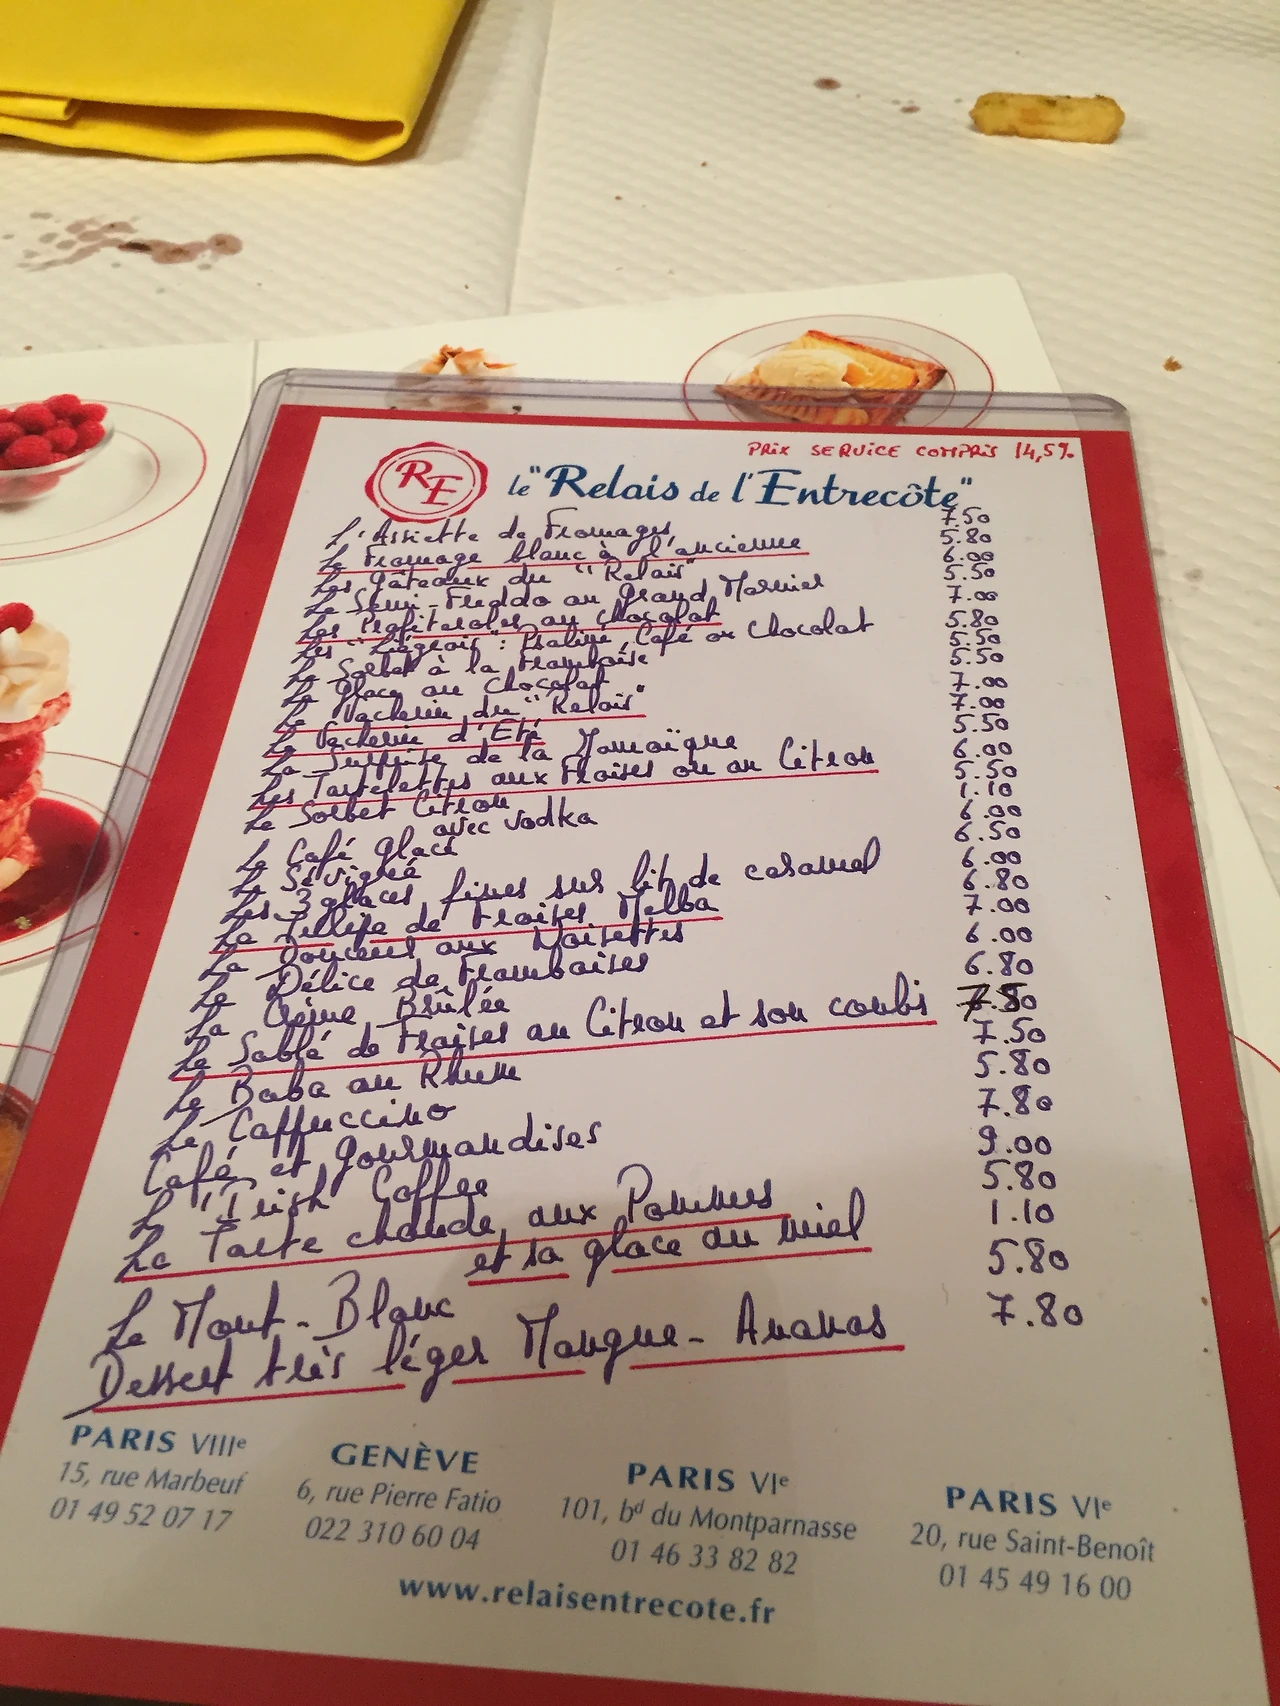 PRIX SERVICE COMPRIS 14,5%
RE le "Relais de l'Entrecôte"
L'Assiette de Fromages 7.50
Le Fromage blanc à l'ancienne 5.80
Les Gâteaux du "Relais" 6.00
Le Semi-Freddo au Grand Marnier 5.50
Les Profiteroles au Chocolat 7.00
Les "Liégeois": Praliné, Café ou Chocolat 5.80
Le Sorbet à la Framboise 5.50
La Glace au Chocolat 5.50
Le Vacherin du "Relais" 7.00
Le Vacherin d'Eté 7.00
La Surprise de la Jamaïque 5.50
Les Tartelettes aux Fraises ou au Citron 6.00
Le Sorbet Citron 5.50
avec vodka 1.10
Le Café glacé 6.00
Le Sévigné 6.50
Les 3 glaces fines sur lit de caramel 6.00
La Tulipe de Fraises Melba 6.80
La Douceur aux Noisettes 7.00
Le Délice de Framboises 6.00
La Crème Brûlée 6.80
Le Sablé de Fraises au Citron et son coulis 7.50
Le Baba au Rhum 7.50
Le Cappuccino 5.80
Café et gourmandises 7.80
L'Irish Coffee 9.00
La Tarte chaude aux Pommes 5.80
et sa glace au miel 1.10
Le Mont-Blanc 5.80
Dessert très léger Mangue-Ananas 7.80
PARIS VIIIe
15, rue Marbeuf
01 49 52 07 17
GENÈVE
6, rue Pierre Fatio
022 310 60 04
PARIS VIe
101, bd du Montparnasse
01 46 33 82 82
PARIS VIe
20, rue Saint-Benoît
01 45 49 16 00
www.relaisentrecote.fr